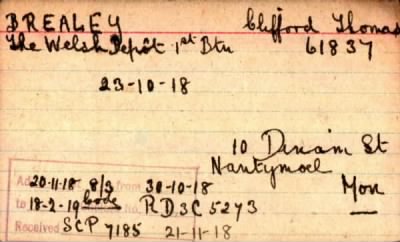 BREALEY Clifford Thomas
The Welsh Depôt 1st Btn 61837
23-10-18
10 Dinam St
Nantymoel
Mon
20-11-18 8/3 from 30-10-18
to 18-2-19 Code no. RDSC 5273
Received SCP 7185 21-11-18